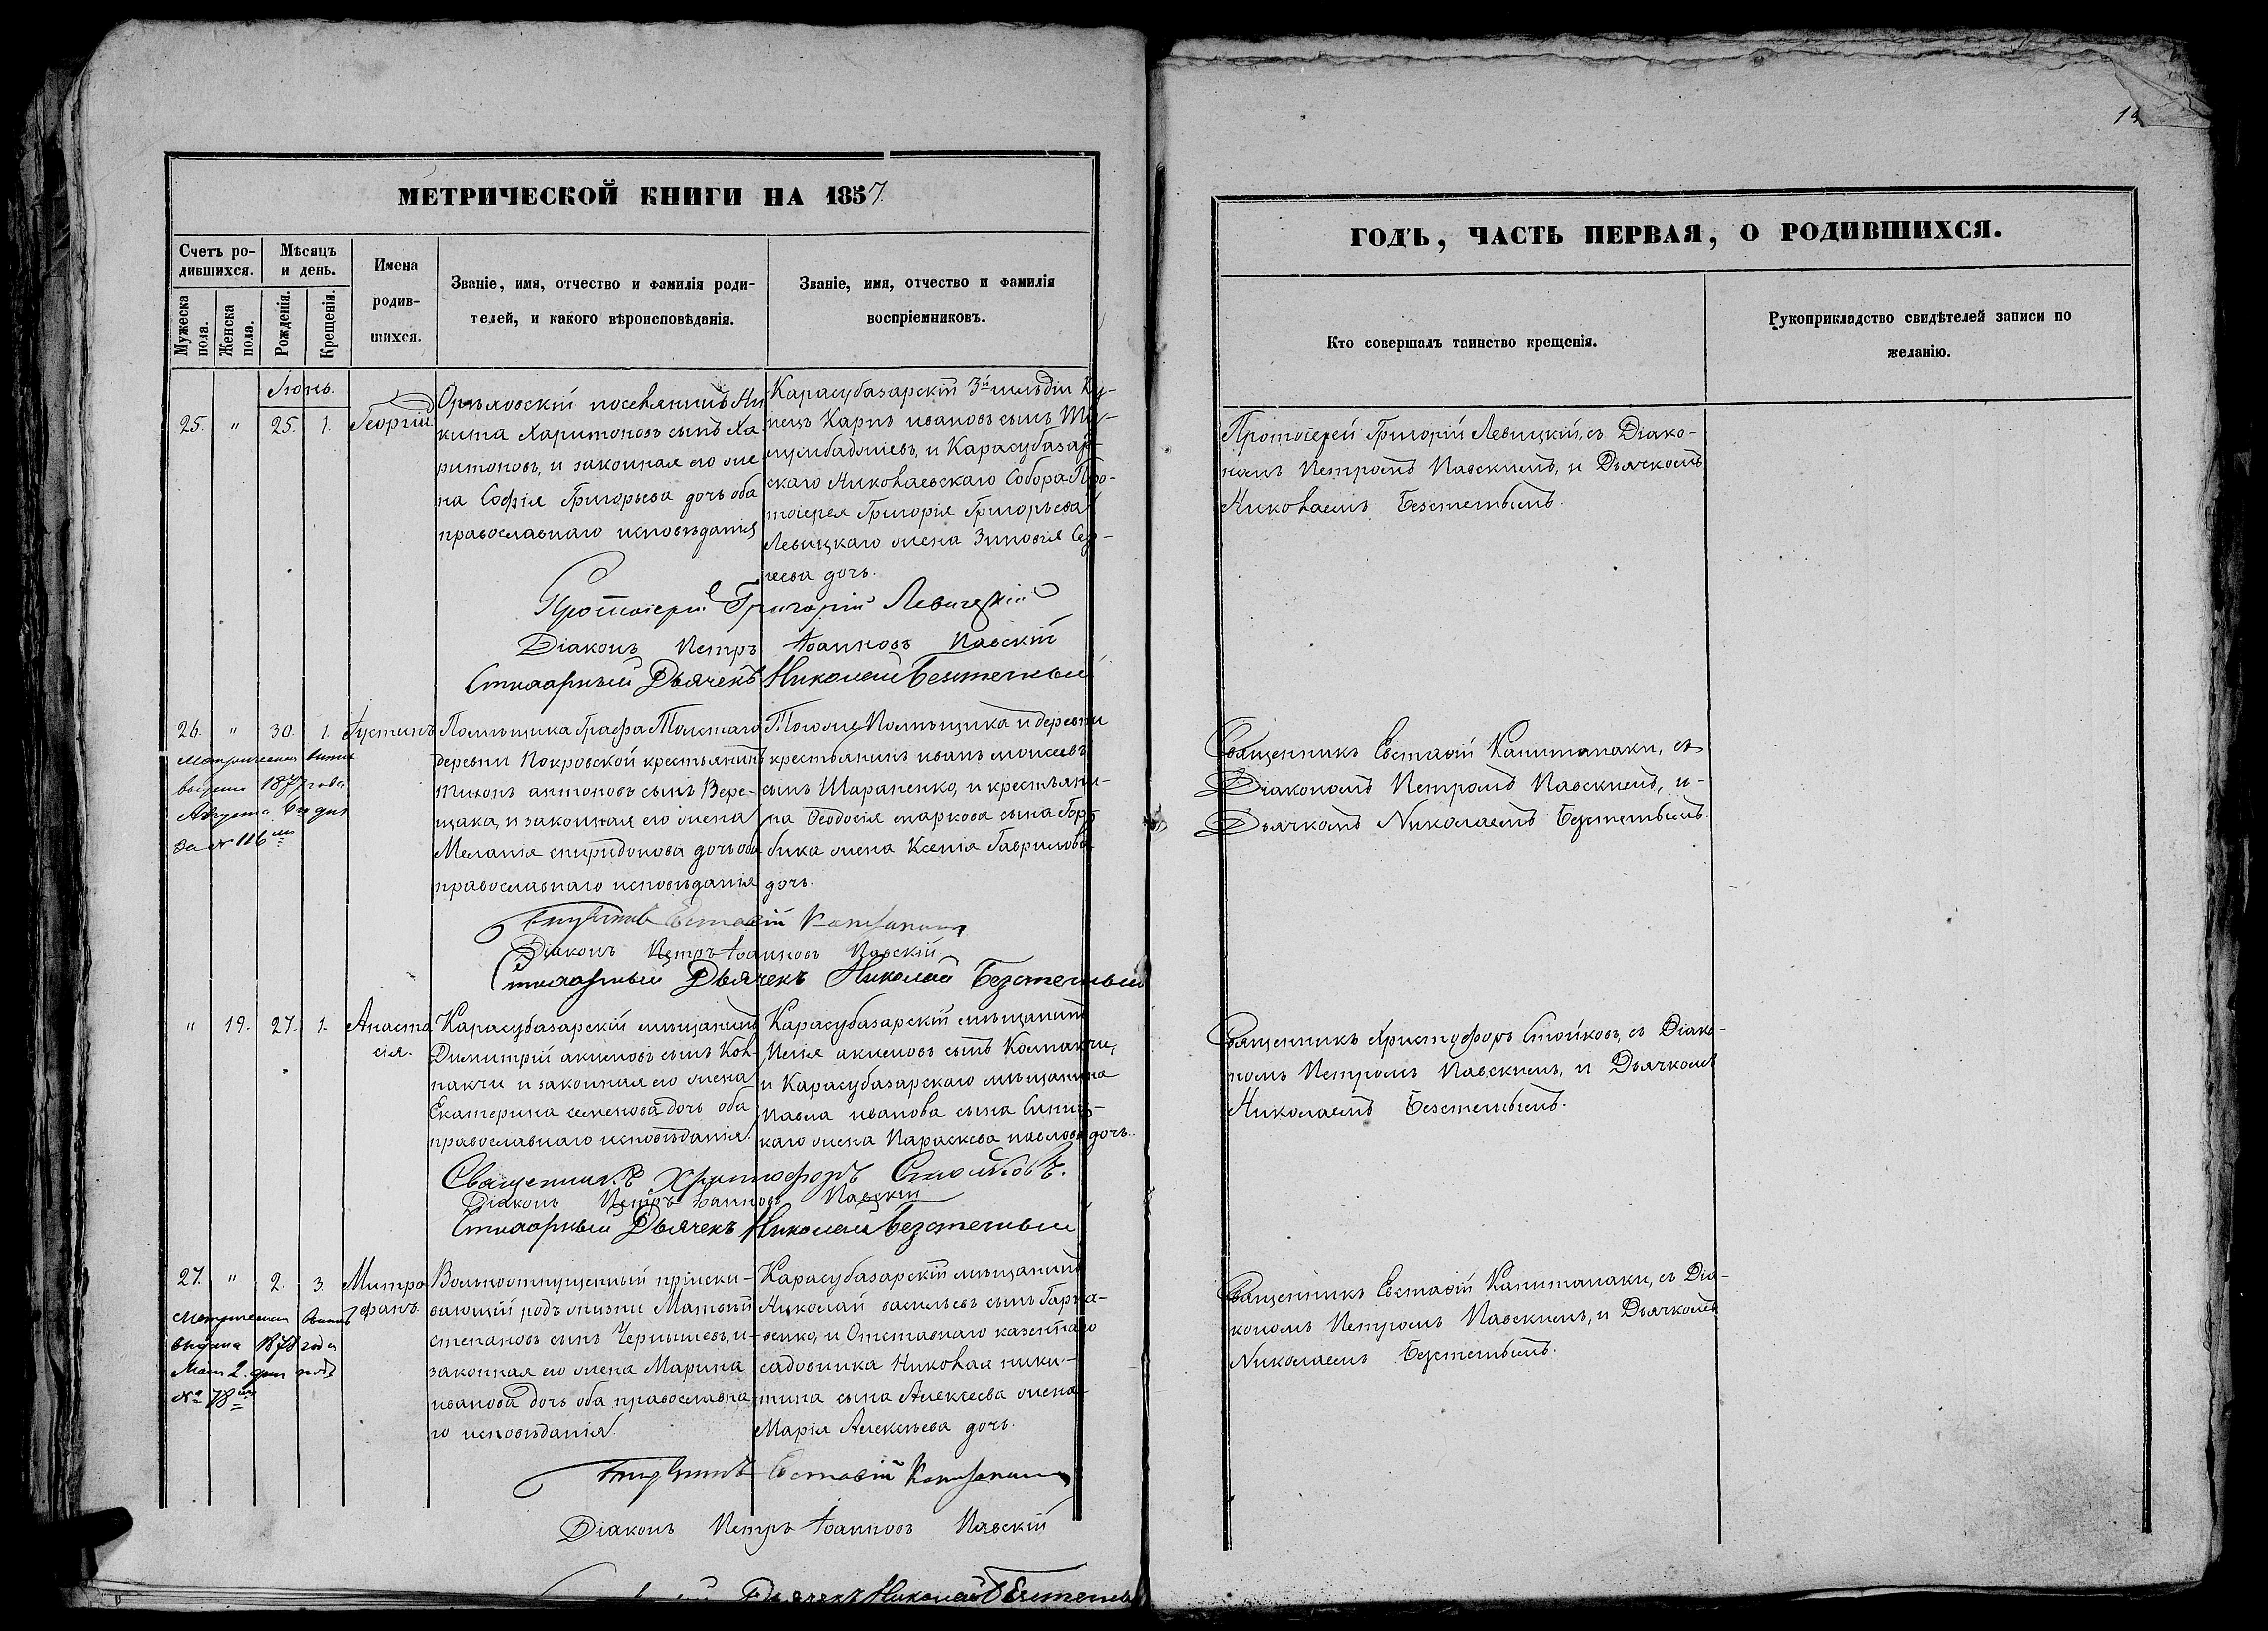 МЕТРИЧЕСКОЙ КНИГИ НА 1857.
Счетъ ро-
дившихся.
Мѣсяцъ
и день.
Мужеска
пола.
Женска
пола.
Рожденія.
Крещенія.
Имена
родив-
шихся.
Званіе, имя, отчество и фамилія роди-
телей, и какого вѣроисповѣданія.
Званіе, имя, отчество и фамилія
воспріемниковъ.
Іюнь.
25. " 25. 1. Георгій
посѣлянинъ Ни
кита Харитоновъ сынъ Ха
ритоновъ, и законная его же
на Софія Григорьева дочь оба
православнаго исповѣданія
Карасубазарскій 3й гильдіи Ку-
пецъ Карпъ ивановъ сынъ
и Карасубазар-
скаго Николаевскаго Собора Про-
тоіерея Григорія Григорьева
Левицкаго жена Зиновія Сер-
геева дочь.
Протоіерей Григорій Левицкій
Діаконъ Петръ Іоанновъ Павскій
Стихарный Дьячекъ Николай Безстетный
26. " 30. 1. Іустинъ
выдана 1877 года
Августа 6го дня
за № 116
Помѣщика Графа Толстаго
деревни Покровской крестьянинъ
тихонъ антоновъ сынъ Вере-
щака, и законная его жена
Меланія спиридонова дочь оба
православнаго исповѣданія
Тогоже Помѣщика и деревни
крестьянинъ иванъ моисеевъ
сынъ Шарапенко, и крестьяни-
на Ѳеодосія маркова сына Гор-
бика жена Ксенія Гаврилова
дочь.
Священникъ Евстафій Капитанаки
Діаконъ Петръ Іоанновъ Павскій
Стихарный Дьячекъ Николай Безстетный
" 19. 27. 1. Анаста
сія.
Карасубазарскій мѣщанинъ
Димитрій акимовъ сынъ Кол-
пакчи и законная его жена
Екатерина семенова дочь оба
православнаго исповѣданія.
Карасубазарскій мѣщанинъ
Илія акимовъ сынъ Колпакчи,
и Карасубазарскаго мѣщанина
Павла иванова сына
каго жена Параскева павлова дочь.
Священникъ Христофоръ Стойковъ.
Діаконъ Петръ Іоанновъ Павскій
Стихарный Дьячекъ Николай Безстетный
27. " 2. 3. Митро
фанъ.
выдана 1878 года
Мая 2. дня подъ
№ 78
Вольноотпущенный пріиски-
вающій родъ жизни Матвѣй
степановъ сынъ Чернышевъ, и
законная его жена Марина
иванова дочь оба православна-
го исповѣданія.
Карасубазарскій мѣщанинъ
Николай васильевъ сынъ
и Отставнаго казеннаго
садовника Николая ники-
тина сына Алексеева жена
Марія Алексѣева дочь.
Священникъ Евстафій Капитанаки
Діаконъ Петръ Іоанновъ Павскій
Дьячекъ Николай Безстетный
ГОДЪ, ЧАСТЬ ПЕРВАЯ, О РОДИВШИХСЯ.
Кто совершалъ таинство крещенія.
Рукоприкладство свидѣтелей записи по
желанію.
Протоіерей Григорій Левицкій, съ Діако-
номъ Петромъ Павскимъ, и Дьячкомъ
Николаемъ Безстетнымъ.
Священникъ Евстафій Капитанаки, съ
Діакономъ Петромъ Павскимъ, и
Дьячкомъ Николаемъ Безстетнымъ.
Священникъ Христофоръ Стойковъ, съ Діако-
номъ Петромъ Павскимъ, и Дьячкомъ
Николаемъ Безстетнымъ.
Священникъ Евстафій Капитанаки, съ Діа-
кономъ Петромъ Павскимъ, и Дьячкомъ
Николаемъ Безстетнымъ.